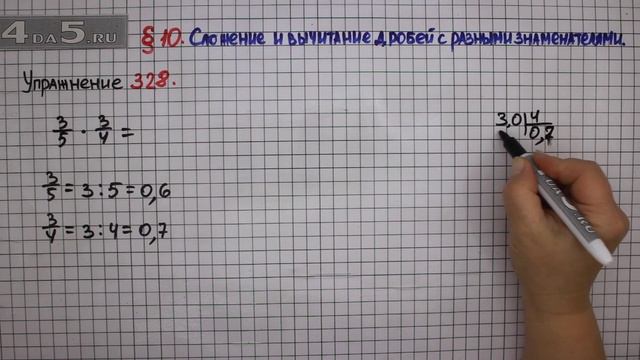 4DA5.RU
§ 10. Сложение и вычитание дробей с разными знаменателями.
Упражнение 328.
3/5 · 3/4 =
3,0 4
0,7
3/5 = 3 : 5 = 0,6
3/4 = 3 : 4 = 0,7